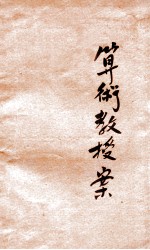 算術教授案